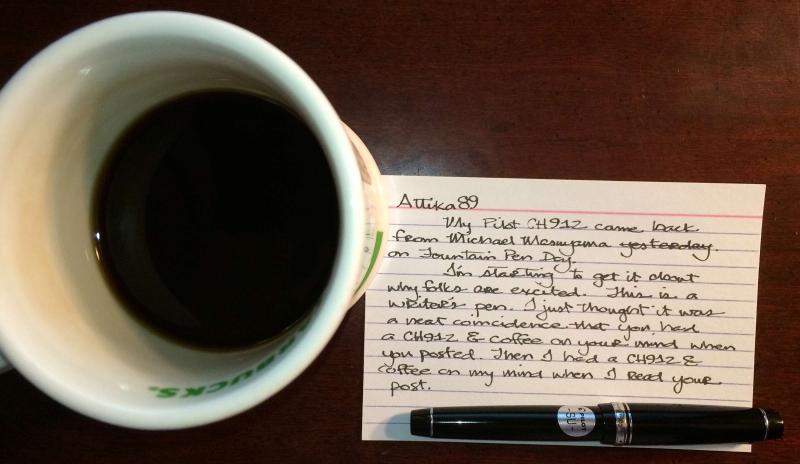 Attika89
My Pilot CH912 came back
from Michael Masuyama yesterday.
on Fountain Pen Day.
I'm starting to get it about
why folks are excited. This is a
writer's pen. I just thought it was
a neat coincidence that you had
a CH912 & coffee on your mind when
you posted. Then I had a CH912 &
coffee on my mind when I read your
post.
PILOT
-SU-
BUCKS.